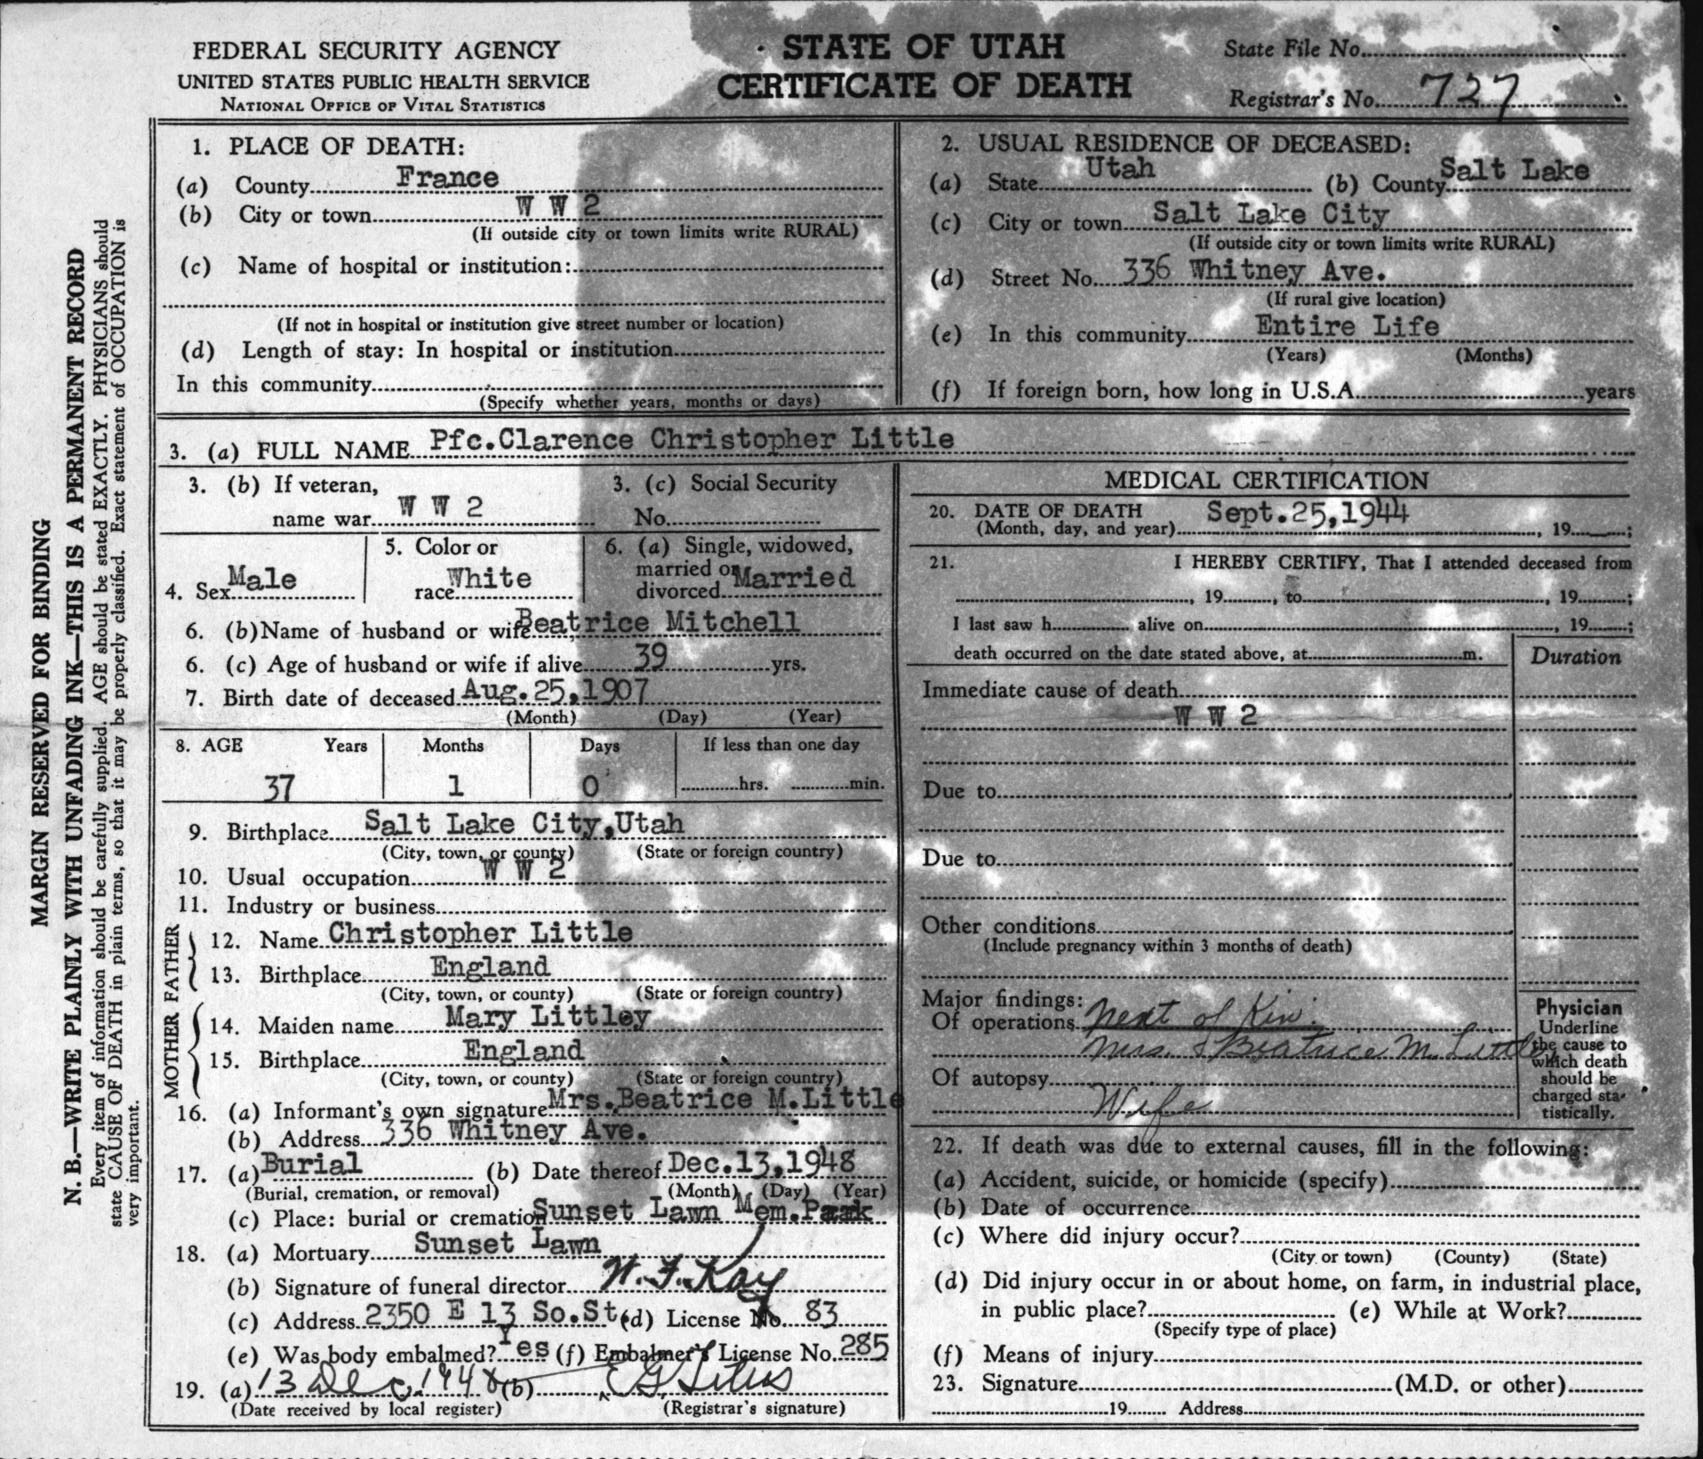 FEDERAL SECURITY AGENCY
UNITED STATES PUBLIC HEALTH SERVICE
NATIONAL OFFICE OF VITAL STATISTICS
STATE OF UTAH
CERTIFICATE OF DEATH
State File No.
Registrar's No. 727
MARGIN RESERVED FOR BINDING
N. B.—WRITE PLAINLY WITH UNFADING INK—THIS IS A PERMANENT RECORD
Every item of information should be carefully supplied. AGE should be stated EXACTLY. PHYSICIANS should
state CAUSE OF DEATH in plain terms, so that it may be properly classified. Exact statement of OCCUPATION is
very important.
1. PLACE OF DEATH:
(a) County France
(b) City or town W W 2
(If outside city or town limits write RURAL)
(c) Name of hospital or institution:
(If not in hospital or institution give street number or location)
(d) Length of stay: In hospital or institution
In this community
(Specify whether years, months or days)
2. USUAL RESIDENCE OF DECEASED:
(a) State Utah (b) County Salt Lake
(c) City or town Salt Lake City
(If outside city or town limits write RURAL)
(d) Street No. 336 Whitney Ave.
(If rural give location)
(e) In this community Entire Life
(Years) (Months)
(f) If foreign born, how long in U.S.A. years
3. (a) FULL NAME Pfc.Clarence Christopher Little
3. (b) If veteran,
name war W W 2
3. (c) Social Security
No.
4. Sex Male
5. Color or
race White
6. (a) Single, widowed,
married or
divorced Married
6. (b) Name of husband or wife Beatrice Mitchell
6. (c) Age of husband or wife if alive 39 yrs.
7. Birth date of deceased Aug.25,1907
(Month) (Day) (Year)
8. AGE Years Months Days If less than one day
37 1 0 hrs. min.
9. Birthplace Salt Lake City,Utah
(City, town, or county) (State or foreign country)
10. Usual occupation W W 2
11. Industry or business
FATHER
12. Name Christopher Little
13. Birthplace England
(City, town, or county) (State or foreign country)
MOTHER
14. Maiden name Mary Littley
15. Birthplace England
(City, town, or county) (State or foreign country)
16. (a) Informant's own signature Mrs.Beatrice M.Little
(b) Address 336 Whitney Ave.
17. (a) Burial (b) Date thereof Dec.13,1948
(Burial, cremation, or removal) (Month) (Day) (Year)
(c) Place: burial or cremation Sunset Lawn Mem.Park
18. (a) Mortuary Sunset Lawn
(b) Signature of funeral director
(c) Address 2350 E 13 So.St. (d) License No. 83
(e) Was body embalmed? Yes (f) Embalmer's License No. 285
19. (a) 13 Dec. 1948 (b)
(Date received by local register) (Registrar's signature)
MEDICAL CERTIFICATION
20. DATE OF DEATH
(Month, day, and year) Sept.25,1944 , 19 ;
21. I HEREBY CERTIFY, That I attended deceased from
, 19 , to , 19 ;
I last saw h alive on , 19 ;
death occurred on the date stated above, at m.
Duration
Immediate cause of death
W W 2
Due to
Due to
Other conditions
(Include pregnancy within 3 months of death)
Major findings:
Of operations Next of Kin:
Mrs. Beatrice M. Little
Of autopsy
Wife
Physician
Underline
the cause to
which death
should be
charged sta-
tistically.
22. If death was due to external causes, fill in the following:
(a) Accident, suicide, or homicide (specify)
(b) Date of occurrence
(c) Where did injury occur?
(City or town) (County) (State)
(d) Did injury occur in or about home, on farm, in industrial place,
in public place? (e) While at Work?
(Specify type of place)
(f) Means of injury
23. Signature (M.D. or other)
19 Address